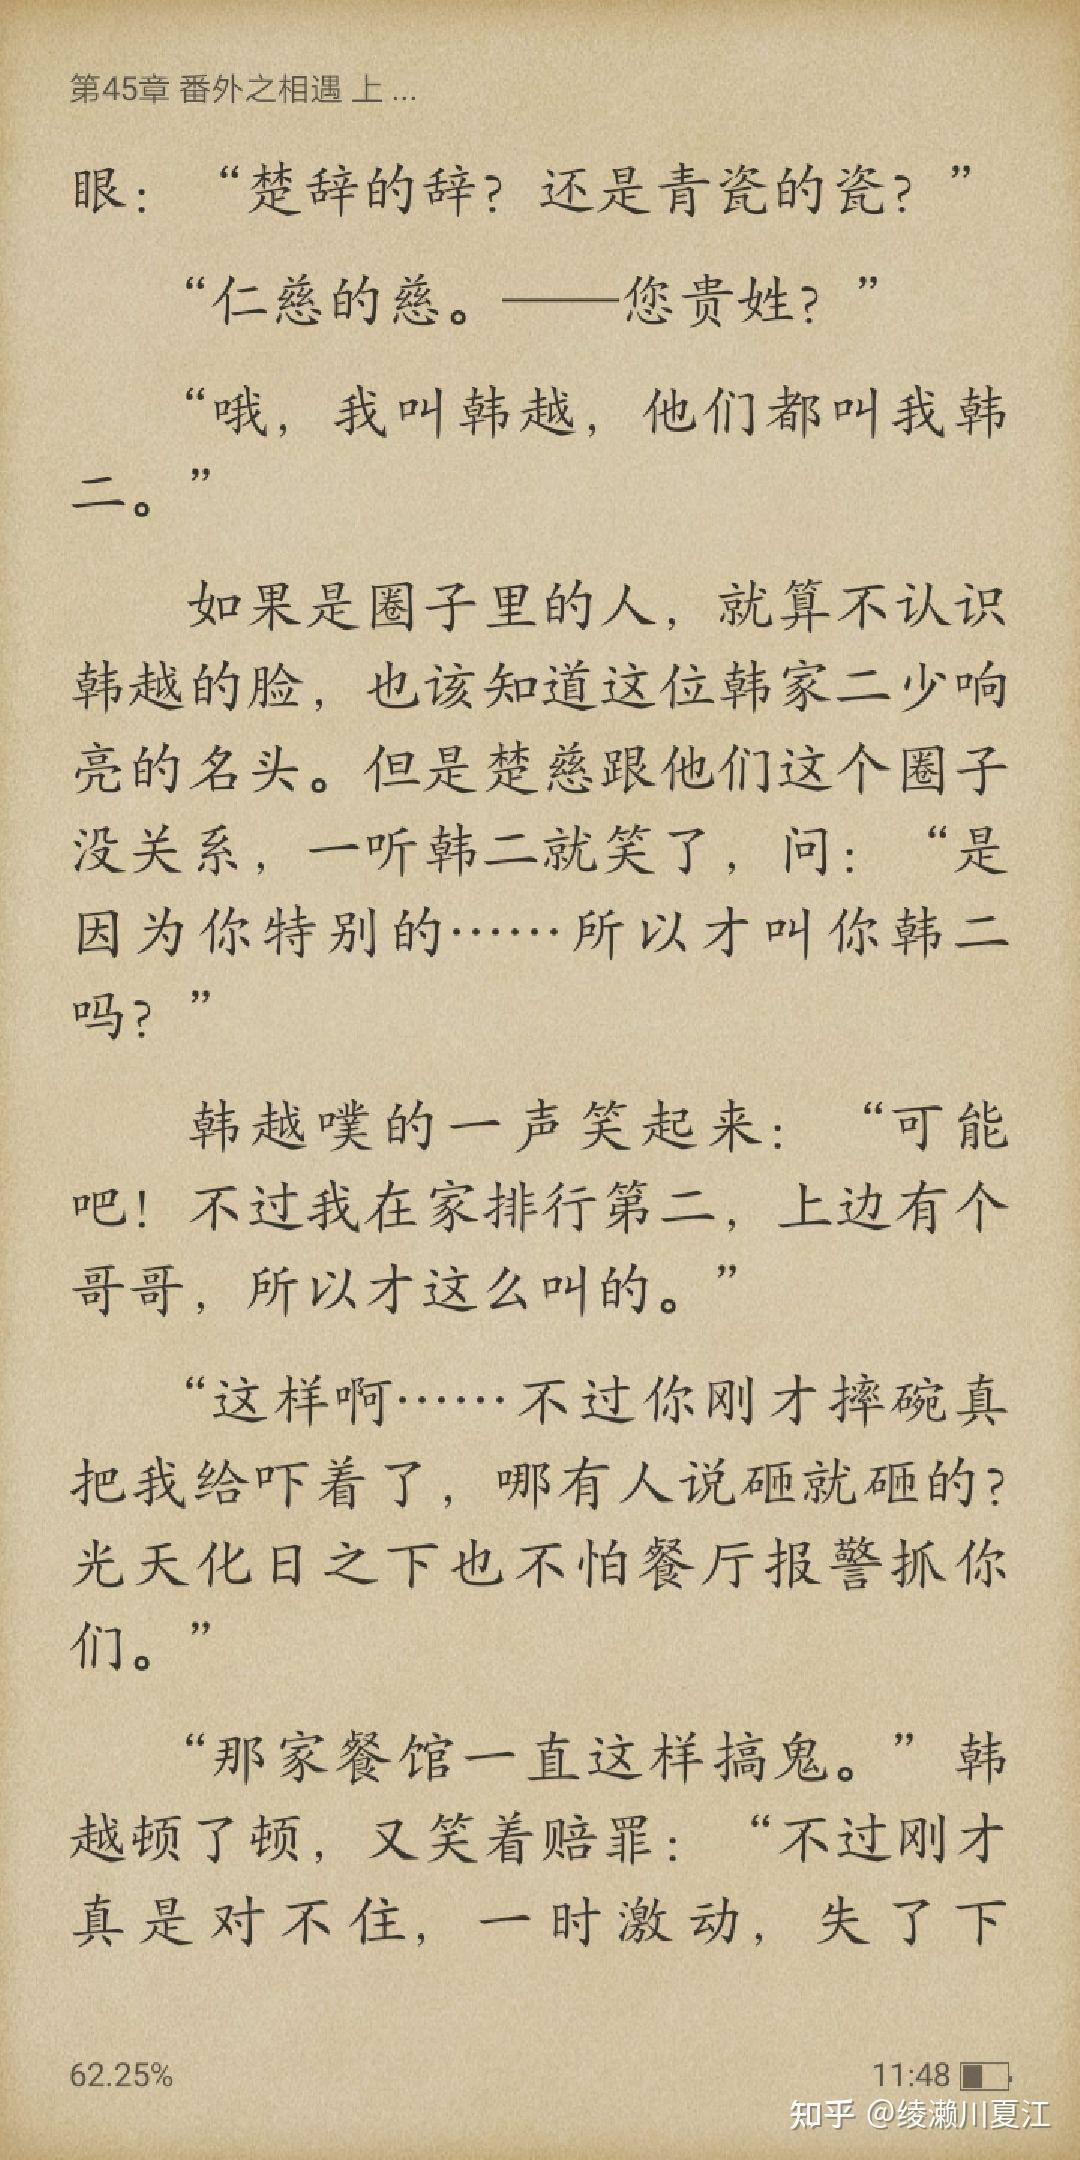 第45章 番外之相遇 上 ...
眼：“楚辞的辞？还是青瓷的瓷？”
“仁慈的慈。——您贵姓？”
“哦，我叫韩越，他们都叫我韩
二。”
如果是圈子里的人，就算不认识
韩越的脸，也该知道这位韩家二少响
亮的名头。但是楚慈跟他们这个圈子
没关系，一听韩二就笑了，问：“是
因为你特别的……所以才叫你韩二
吗？”
韩越噗的一声笑起来：“可能
吧！不过我在家排行第二，上边有个
哥哥，所以才这么叫的。”
“这样啊……不过你刚才摔碗真
把我给吓着了，哪有人说砸就砸的？
光天化日之下也不怕餐厅报警抓你
们。”
“那家餐馆一直这样搞鬼。”韩
越顿了顿，又笑着赔罪：“不过刚才
真是对不住，一时激动，失了下
62.25%
11:48
知乎 @绫濑川夏江